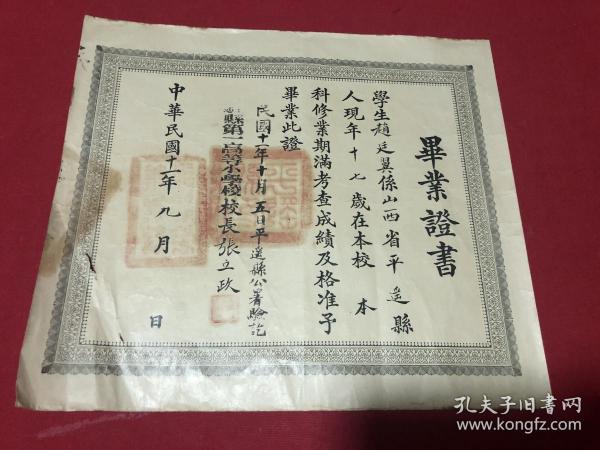 畢業證書
學生趙廷翼係山西省平遙縣
人現年十七歲在本校 本
科修業期滿考查成績及格准予
畢業此證
民國十一年十月五日平遙縣公署驗訖
縣第一高等小學校校長張立政
中華民國十一年九月 日
孔夫子旧书网
www.kongfz.com